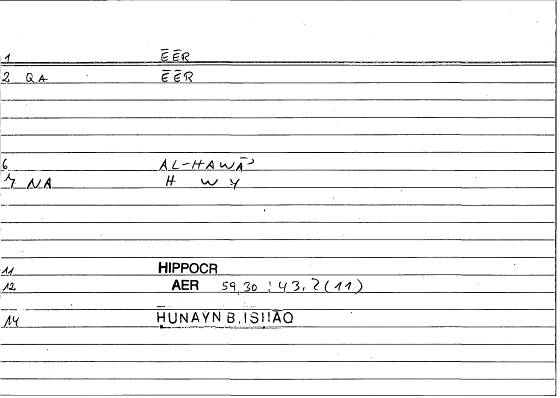 1 ĒĒR
2 QA ĒĒR
6 AL-HAWĀʾ
7 NA H W Y
11 HIPPOCR
12 AER 59,30 : 43,2 (11)
14 HUNAYN B.ISḤĀQ